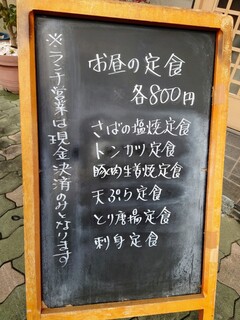 お昼の定食
各800円
さばの塩焼定食
トンカツ定食
豚肉生姜焼定食
天ぷら定食
とり唐揚定食
刺身定食
※ランチ営業は現金決済のみとなります